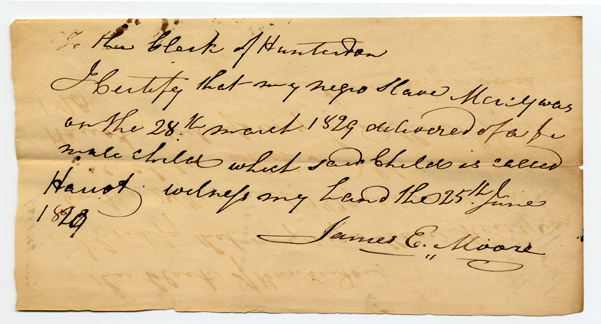 To the Clerk of Hunterdon
I Certify that my negro Slave was
on the 28th march 1829 delivered of a fe
male child which said Child is called
Hariot witness my hand the 25th June
1829
James E. Moore